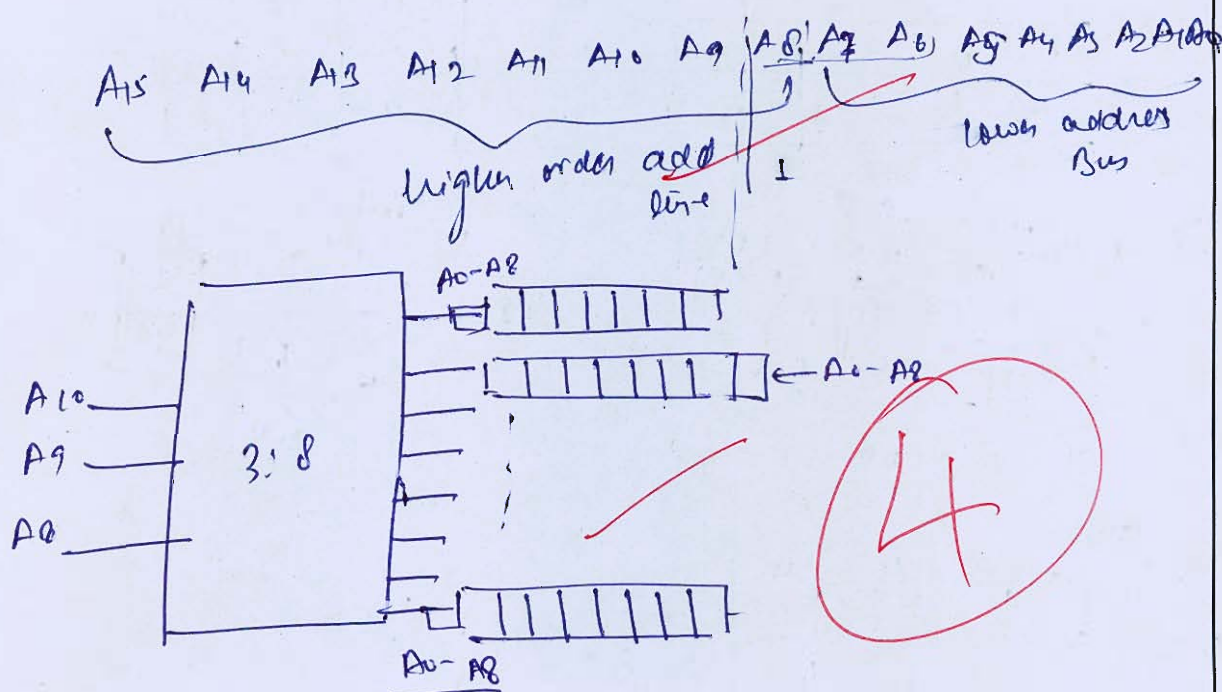 A15 A14 A13 A12 A11 A10 A9 A8 A7 A6 A5 A4 A3 A2 A1 A0
higher order add line
1
lower address Bus
A0-A8
← A0-A8
A10
A9
3:8
A8
4
A0-A8